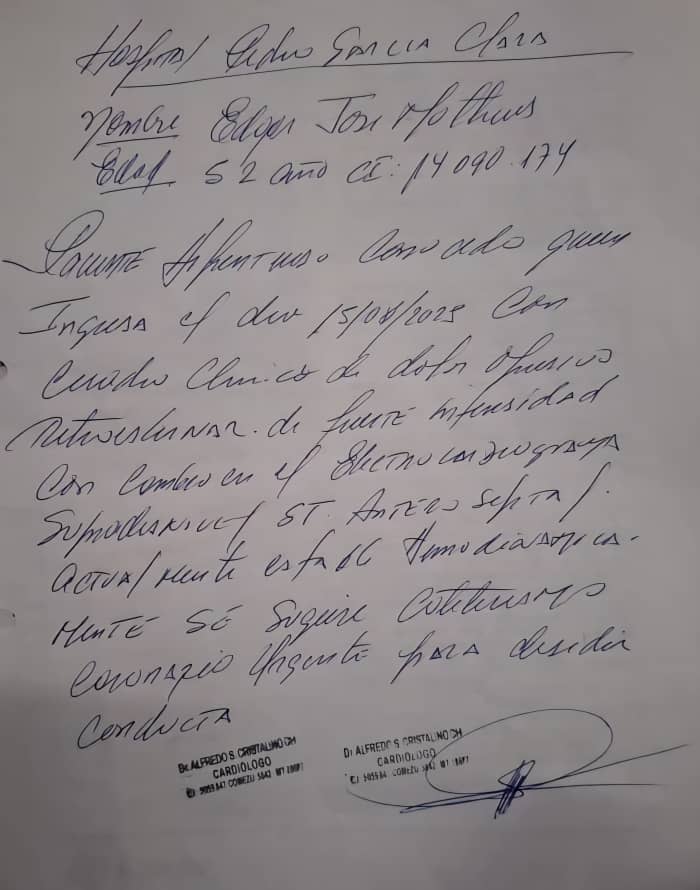 Hospital Pedro Garcia Clara
Nombre Edgar Jose Matheus
Edad 52 año CI: 14 090.174
Paciente Hipertenso conocido quien
Ingresa el dia 15/08/2023 Con
Cuadro Clinico de dolor opresivo
Retroesternar de fuerte intensidad
Con cambio en el Electrocardiograma
Supradesnivel ST. Antero septal.
Actualmente estable Hemodinamica-
mente SE Sugiere Cateterismo
Coronario Urgente para decidir
Conducta
Dr. ALFREDO S. CRISTALINO CH
CARDIOLOGO
Dr ALFREDO S. CRISTALINO CH
CARDIOLOGO